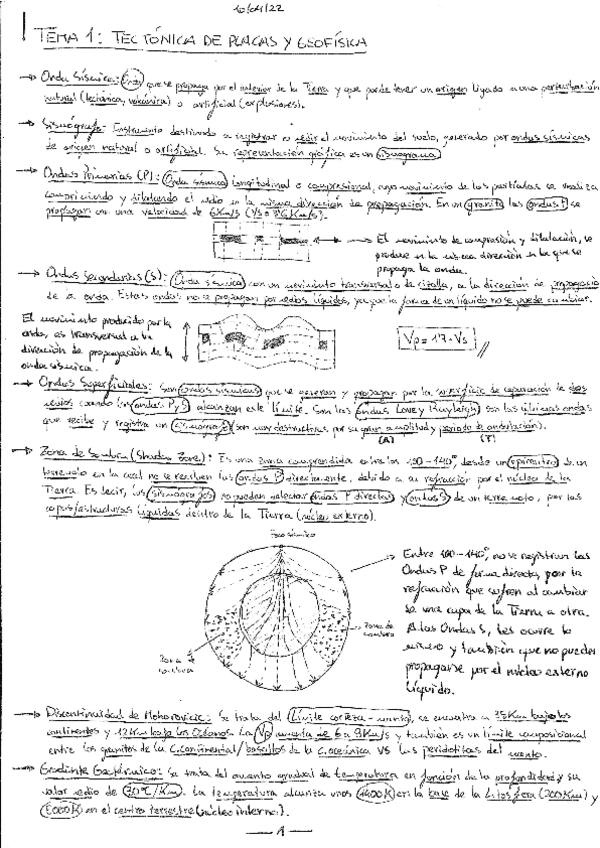 10/04/22
TEMA 1: TECTÓNICA DE PLACAS Y GEOFÍSICA
→ Onda Sísmica: Onda que se propaga por el interior de la Tierra y que puede tener un origen ligado a una perturbación
natural (tectónica, volcánica) o artificial (explosiones).
→ Sismógrafo: Instrumento destinado a registrar o medir el movimiento del suelo, generado por ondas sísmicas
de origen natural o artificial. Su representación gráfica es un sismograma.
→ Ondas Primarias (P): Onda sísmica longitudinal o compresional, cuyo movimiento de las partículas se realiza
comprimiendo y dilatando el medio en la misma dirección de propagación. En un granito las ondas P se
propagan con una velocidad de 6 Km/s
→ El movimiento de compresión y dilatación, se
produce en la misma dirección en la que se
propaga la onda.
→ Ondas Secundarias (S): Onda sísmica con un movimiento transversal o de cizalla, a la dirección de propagación
de la onda. Estas ondas no se propagan por medios líquidos, ya que la forma de un líquido no se puede cambiar.
El movimiento producido por la
onda, es transversal a la
dirección de propagación de la
onda sísmica.
Vp = 1,7 · Vs
→ Ondas Superficiales: Son ondas sísmicas que se generan y propagan por la superficie de separación de dos
medios cuando las ondas P y S alcanzan este límite. Son las ondas Love y Rayleigh son las últimas ondas
que recibe y registra un sismógrafo son muy destructivas por su gran amplitud y periodo de ondulación).
(A) (T)
→ Zona de Sombra (Shadow Zone): Es una zona comprendida entre los 100-140°, desde un epicentro de un
terremoto en la cual no se reciben las ondas P directamente, debido a su refracción por el núcleo de la
Tierra. Es decir, los sismógrafos no pueden detectar ondas P directas y ondas S de un terremoto, por las
capas/estructuras líquidas dentro de la Tierra (núcleo externo).
Foco sísmico
Zona de
sombra
Zona de
sombra
→ Entre 100-140°, no se registran las
Ondas P de forma directa, por la
refracción que sufren al cambiar
de una capa de la Tierra a otra.
A las Ondas S, les ocurre lo
mismo y también que no pueden
propagarse por el núcleo externo
líquido.
→ Discontinuidad de Mohorovicic: Se trata del límite corteza-manto, se encuentra a 35Km bajo los
continentes y 12Km bajo los Océanos. La Vp aumenta de 6 a 8Km/s y también es un límite composicional
entre los granitos de la C. continental/basaltos de la C. oceánica VS las peridotitas del manto.
→ Gradiente Geotérmico: Se trata del aumento gradual de temperatura en función de la profundidad y su
valor medio de 30°C/Km. La temperatura alcanza unos 1400K en la base de la Litosfera (200Km) y
6000K en el centro terrestre (núcleo interno).
— 1 —